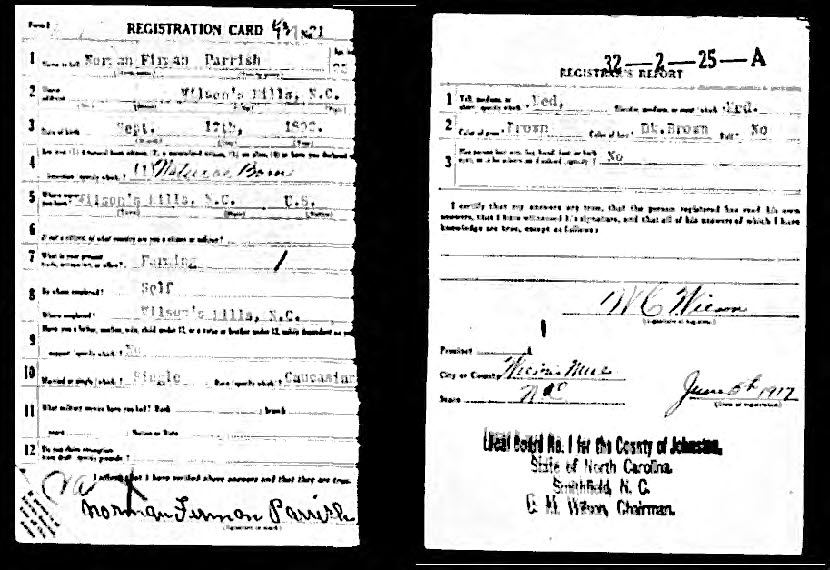 REGISTRATION CARD
No. 21
1 Norman Firman Parrish
2 Wilson's Mills, N.C.
3 Date of birth Sept. 17th,
4 (1) Natural Born
5 Wilson's Mills, N.C. U.S.
6 If not a citizen, of what country are you a citizen or subject?
7 What is your present
Farming
8 By whom employed? Self
Where employed? Wilson's Mills, N.C.
9 Have you a father, mother, wife, child under 12, or a sister or brother under 12, solely dependent on you
support (specify which)? No
10 Married or single (which)? Single Race (specify which)? Caucasian
11 What military service have you had? Rank ; branch
years ; Nation or State
12 Do you claim exemption
from draft (specify grounds)?
I affirm that I have verified above answers and that they are true.
Norman Firman Parrish
32—2—25—A
REGISTRAR'S REPORT
1 Tall, medium, or
short (specify which)? Med. Slender, medium, or stout (which)? Med.
2 Color of eyes? Brown Color of hair? Dk. Brown Bald? No
3 Has person lost arm, leg, hand, foot, or both
No
I certify that my answers are true, that the person registered has read his own
answers, that I have witnessed his signature, and that all of his answers of which I have
knowledge are true, except as follows:
W C Wilson
(Signature of registrar)
Precinct 1
City or County Wilson's Mills
State N C
June 5th 1917
(Date of registration)
Local Board No. 1 for the County of Johnston,
State of North Carolina.
Smithfield, N. C.
G. M. Wilson, Chairman.